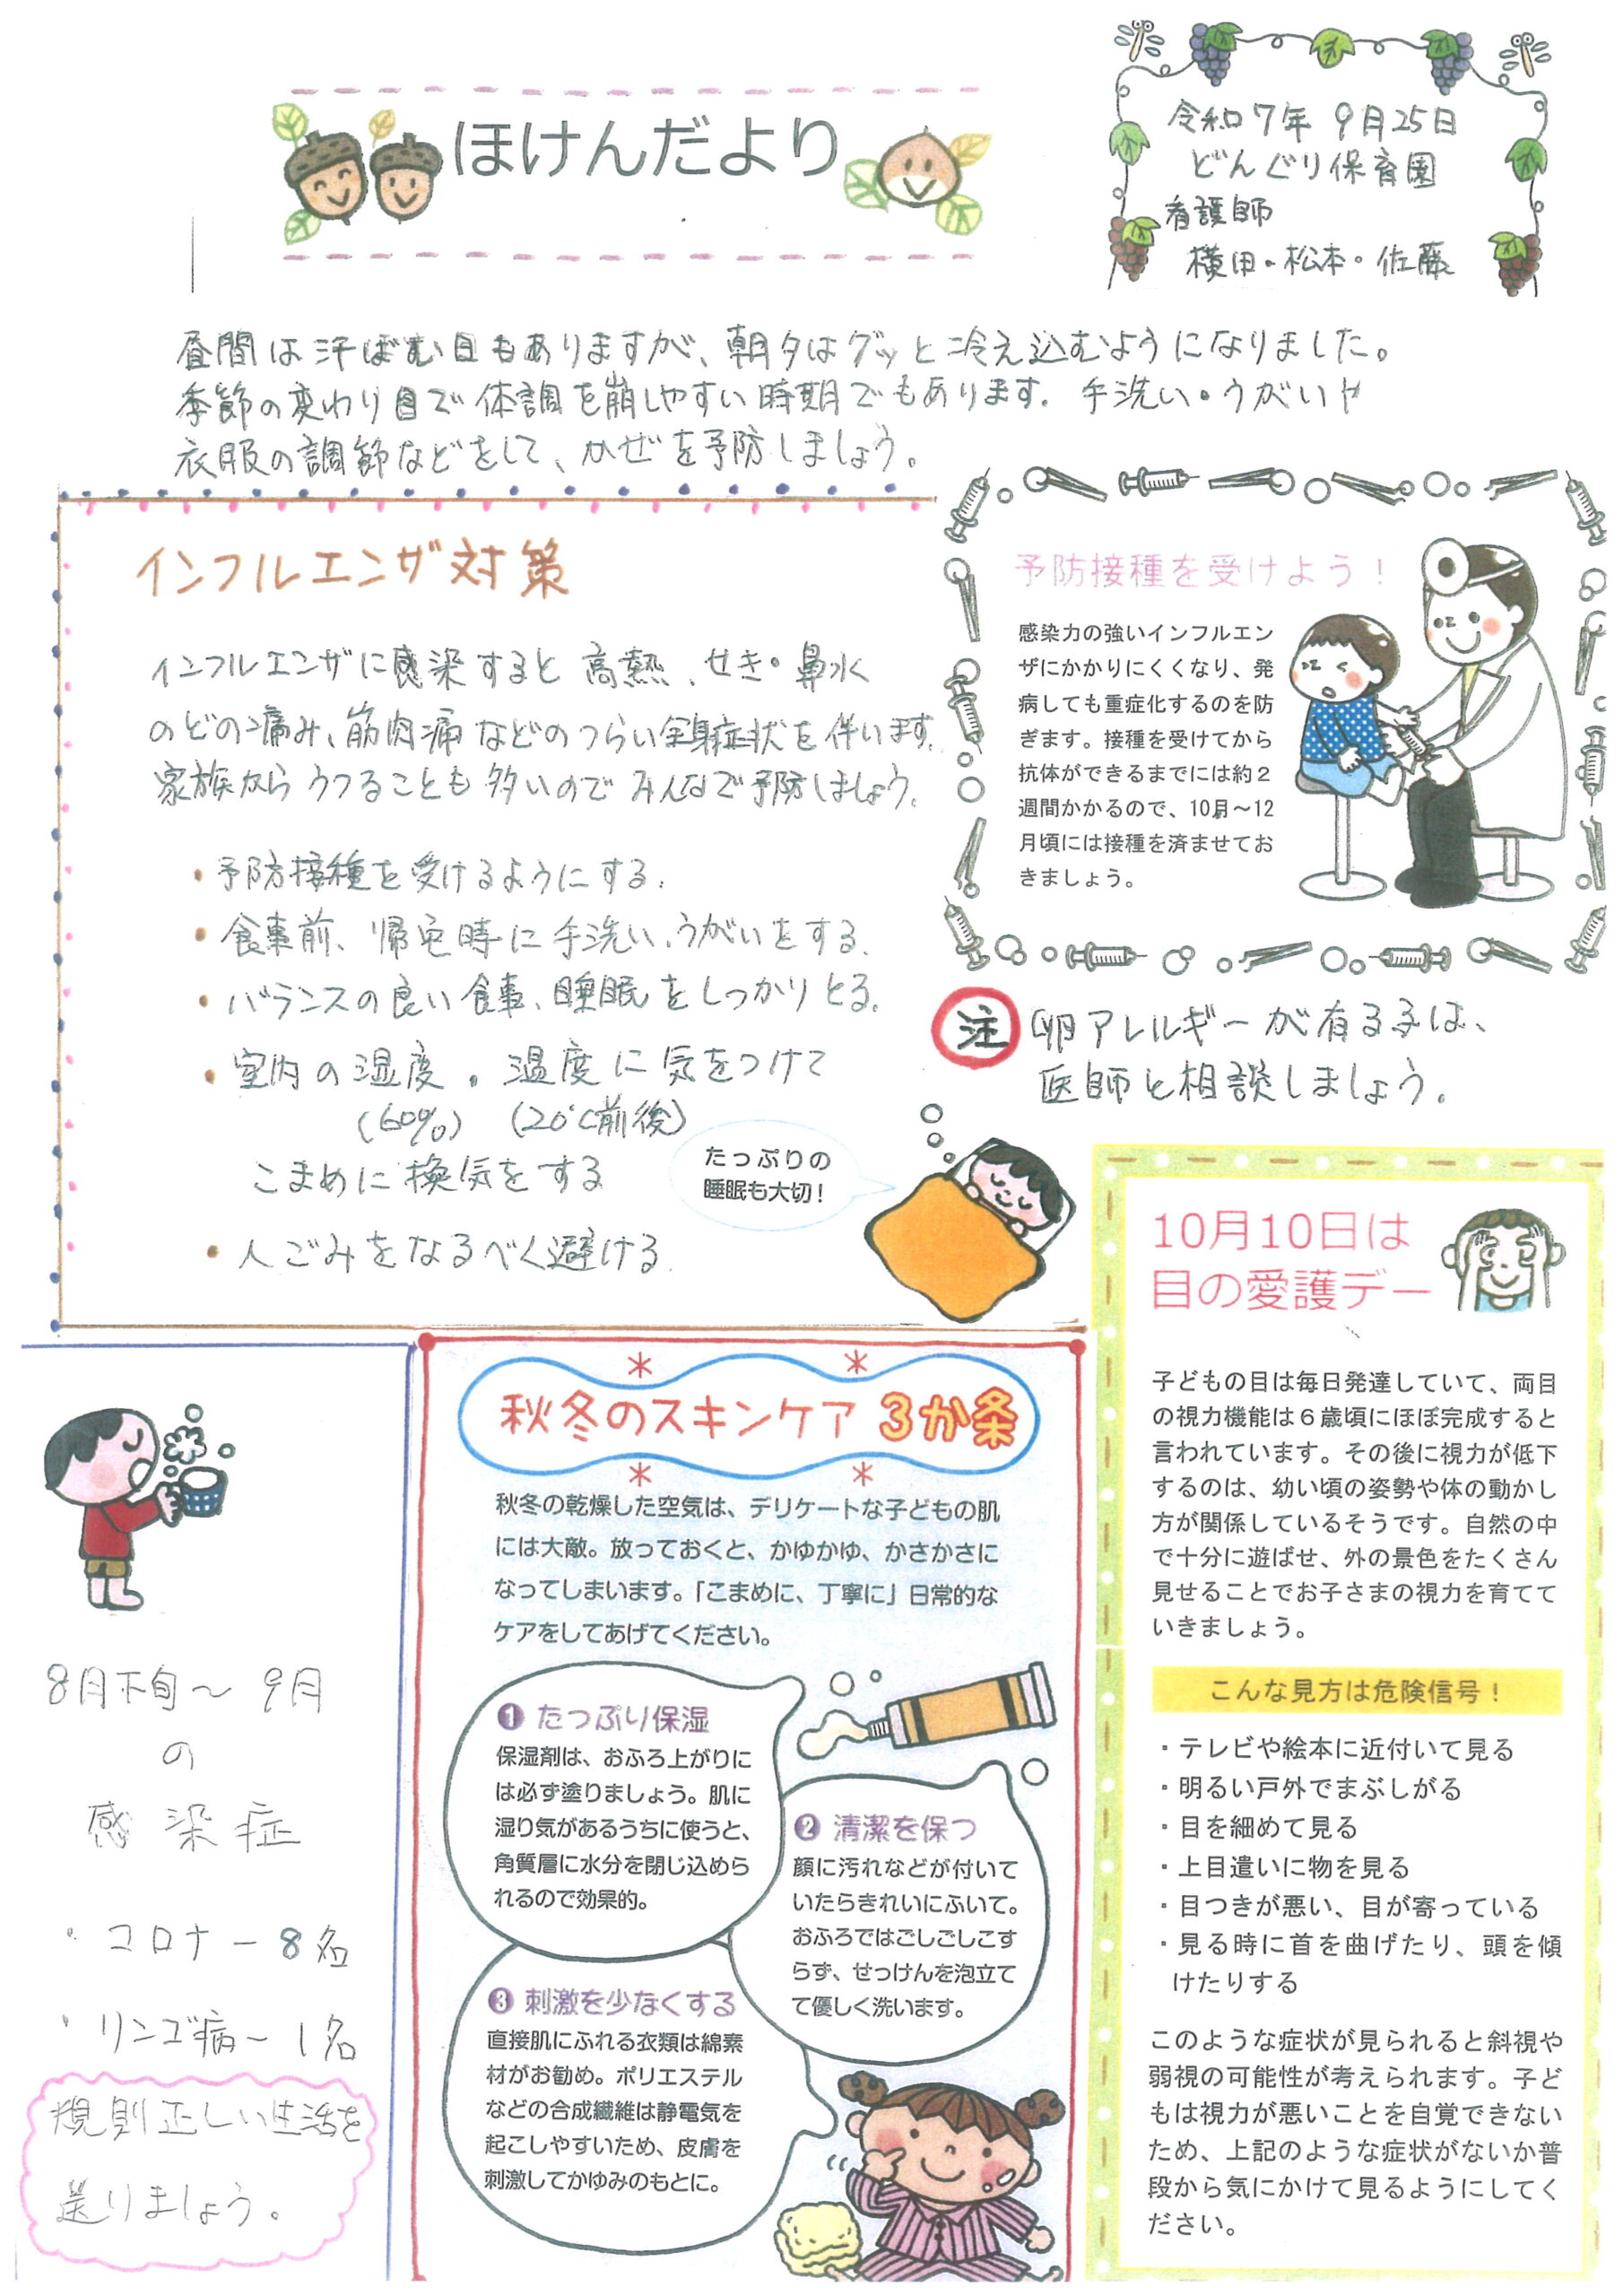 ほけんだより
令和7年 9月25日
どんぐり保育園
看護師
横田・松本・佐藤
昼間は汗ばむ日もありますが、朝夕はグッと冷え込むようになりました。
季節の変わり目で体調を崩しやすい時期でもあります。手洗い・うがいや
衣服の調節などをして、かぜを予防しましょう。
インフルエンザ対策
インフルエンザに感染すると高熱、せき・鼻水
のどの痛み、筋肉痛などのつらい全身症状を伴います。
家族からうつることも多いのでみんなで予防しましょう。
・予防接種を受けるようにする。
・食事前、帰宅時に手洗い、うがいをする。
・バランスの良い食事、睡眠をしっかりとる。
・室内の湿度。温度に気をつけて
(60%) (20℃前後)
こまめに換気をする
・人ごみをなるべく避ける。
たっぷりの
睡眠も大切!
予防接種を受けよう!
感染力の強いインフルエン
ザにかかりにくくなり、発
病しても重症化するのを防
ぎます。接種を受けてから
抗体ができるまでには約2
週間かかるので、10月～12
月頃には接種を済ませてお
きましょう。
注 卵アレルギーが有る子は、
医師と相談しましょう。
10月10日は
目の愛護デー
子どもの目は毎日発達していて、両目
の視力機能は6歳頃にほぼ完成すると
言われています。その後に視力が低下
するのは、幼い頃の姿勢や体の動かし
方が関係しているそうです。自然の中
で十分に遊ばせ、外の景色をたくさん
見せることでお子さまの視力を育てて
いきましょう。
こんな見方は危険信号!
・テレビや絵本に近付いて見る
・明るい戸外でまぶしがる
・目を細めて見る
・上目遣いに物を見る
・目つきが悪い、目が寄っている
・見る時に首を曲げたり、頭を傾
けたりする
このような症状が見られると斜視や
弱視の可能性が考えられます。子ど
もは視力が悪いことを自覚できない
ため、上記のような症状がないか普
段から気にかけて見るようにしてく
ださい。
秋冬のスキンケア 3か条
秋冬の乾燥した空気は、デリケートな子どもの肌
には大敵。放っておくと、かゆかゆ、かさかさに
なってしまいます。「こまめに、丁寧に」日常的な
ケアをしてあげてください。
❶ たっぷり保湿
保湿剤は、おふろ上がりに
は必ず塗りましょう。肌に
湿り気があるうちに使うと、
角質層に水分を閉じ込めら
れるので効果的。
❷ 清潔を保つ
顔に汚れなどが付いて
いたらきれいにふいて。
おふろではごしごしこす
らず、せっけんを泡立て
て優しく洗います。
❸ 刺激を少なくする
直接肌にふれる衣類は綿素
材がお勧め。ポリエステル
などの合成繊維は静電気を
起こしやすいため、皮膚を
刺激してかゆみのもとに。
8月下旬～9月
の
感染症
・コロナー8名
・リンゴ病～1名
規則正しい生活を
送りましょう。